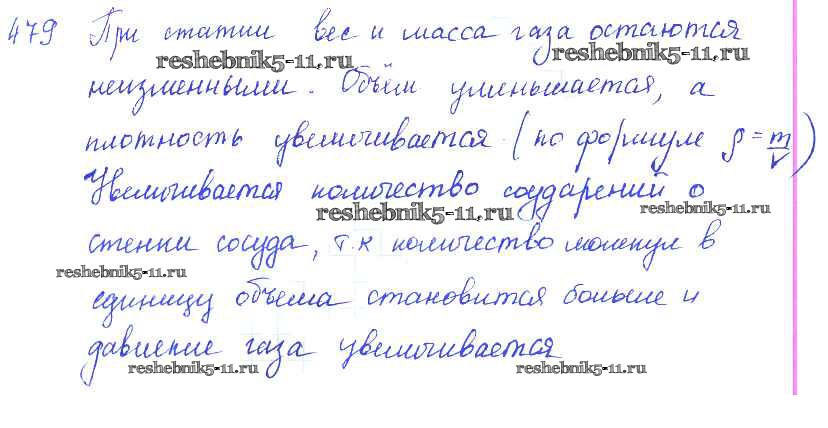 479 При статии вес и масса газа остаются
reshebnik5-11.ru reshebnik5-11.ru
неизменными. Объём уменьшается, а
плотность увеличивается (по формуле ρ = m/V)
Увеличивается количество соударений о
reshebnik5-11.ru reshebnik5-11.ru
стенки сосуда, т.к количество молекул в
reshebnik5-11.ru
единицу объема становится больше и
давление газа увеличивается
reshebnik5-11.ru reshebnik5-11.ru